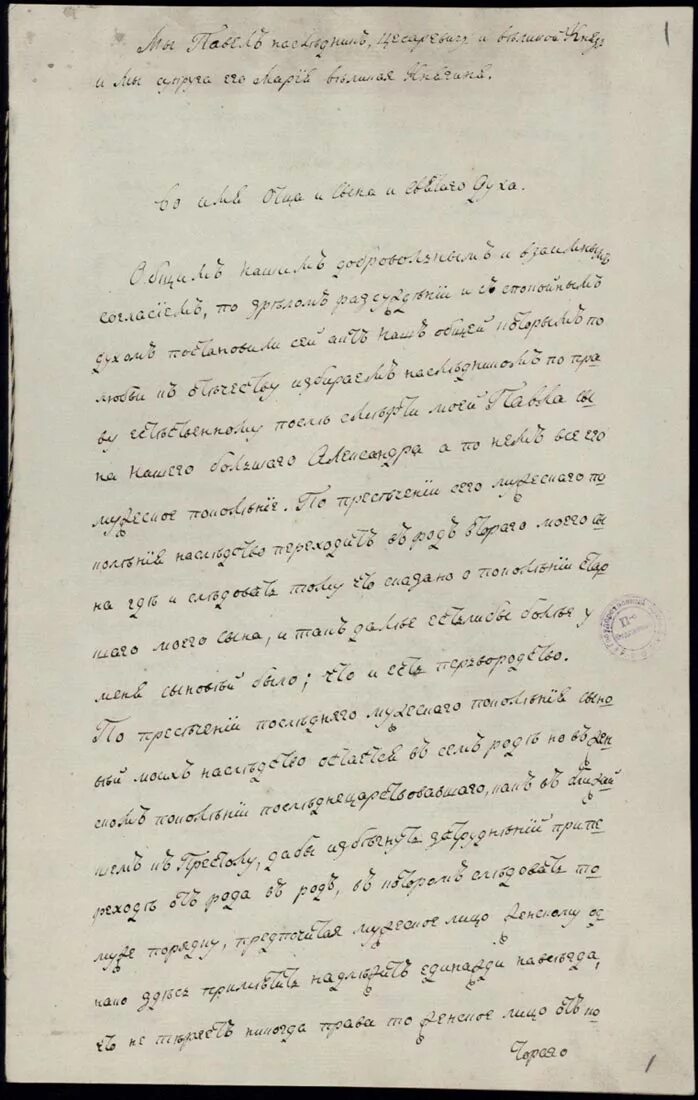 1
Мы Павелъ наслѣдникъ, Цесаревичъ и вѣликой Князь
и мы супруга его Марïя вѣликая Княгиня.
Во имя Отца и Сына и Святаго Духа.
Общимъ нашимъ добровольнымъ и взаимнымъ
согласïемъ, по зрѣломъ разсуждѣнïи и съ спокойнымъ
духомъ постановили сей актъ нашъ общей которымъ по
любви къ отѣчеству избираемъ наслѣдникомъ по пра
ву естѣственному послѣ смѣрти моей Павла сы
на нашего большаго Александра а по немъ все его
мужеское поколѣнïе. По пресѣченïи сего мужескаго по
колѣнïя наслѣдство переходитъ въ родъ втораго моего сы
на гдѣ и слѣдовать тому что сказано о поколѣнïи стар
шаго моего сына, и такъ далѣе естьлибы болѣе у
меня сыновѣй было; что и есть перьвородство.
По пресѣченïи послѣдняго мужескаго поколѣнïя сыно
вѣй моихъ наслѣдство остается въ семъ родѣ но въ жен
скомъ поколѣнïи послѣднецарствовавшаго, какъ въ ближай
шемъ къ Престолу, дабы избѣгнуть затруднѣнïй при пе
реходѣ отъ рода въ родъ, въ которомъ слѣдовать то
муже порядку, предпочитая мужеское лицо женскому од
нако здѣсь примѣтить надлѣжитъ единажди навсѣгда,
что не тѣряетъ никогда права то женское лицо отъ ко
тораго
1